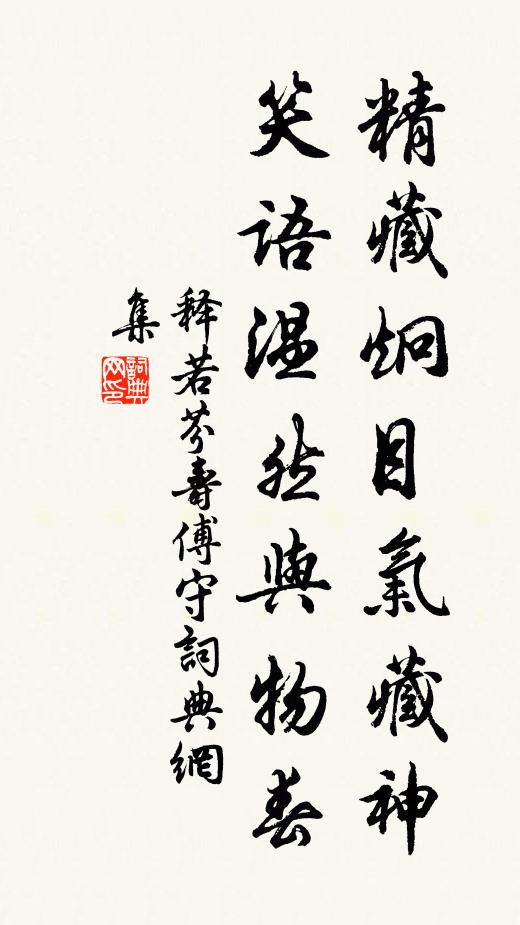 精藏炯目氣藏神
笑語温然與物春
释若芬壽傅守詞典網
集
詞典
网印